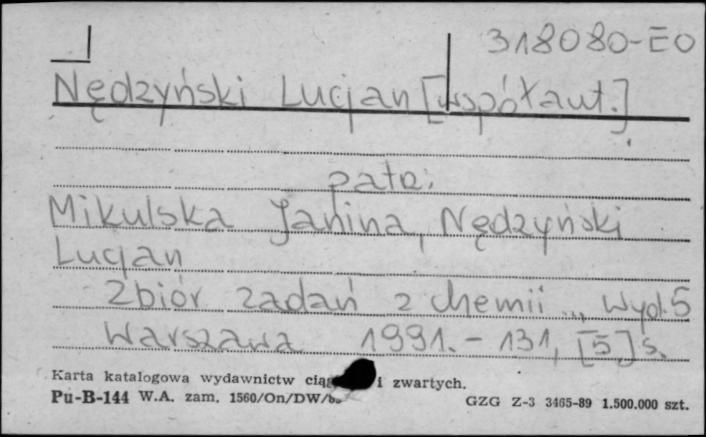 318080-EO
Nędzyński Lucjan [współaut.]
patrz:
Mikulska Janina, Nędzyński
Lucjan
Zbiór zadań z chemii ..., Wyd. 5
Warszawa 1991. - 131, [5] s.
Karta katalogowa wydawnictw i zwartych.
Pu-B-144 W.A. zam. 1560/On/DW/ GZG Z-3 3465-89 1.500.000 szt.